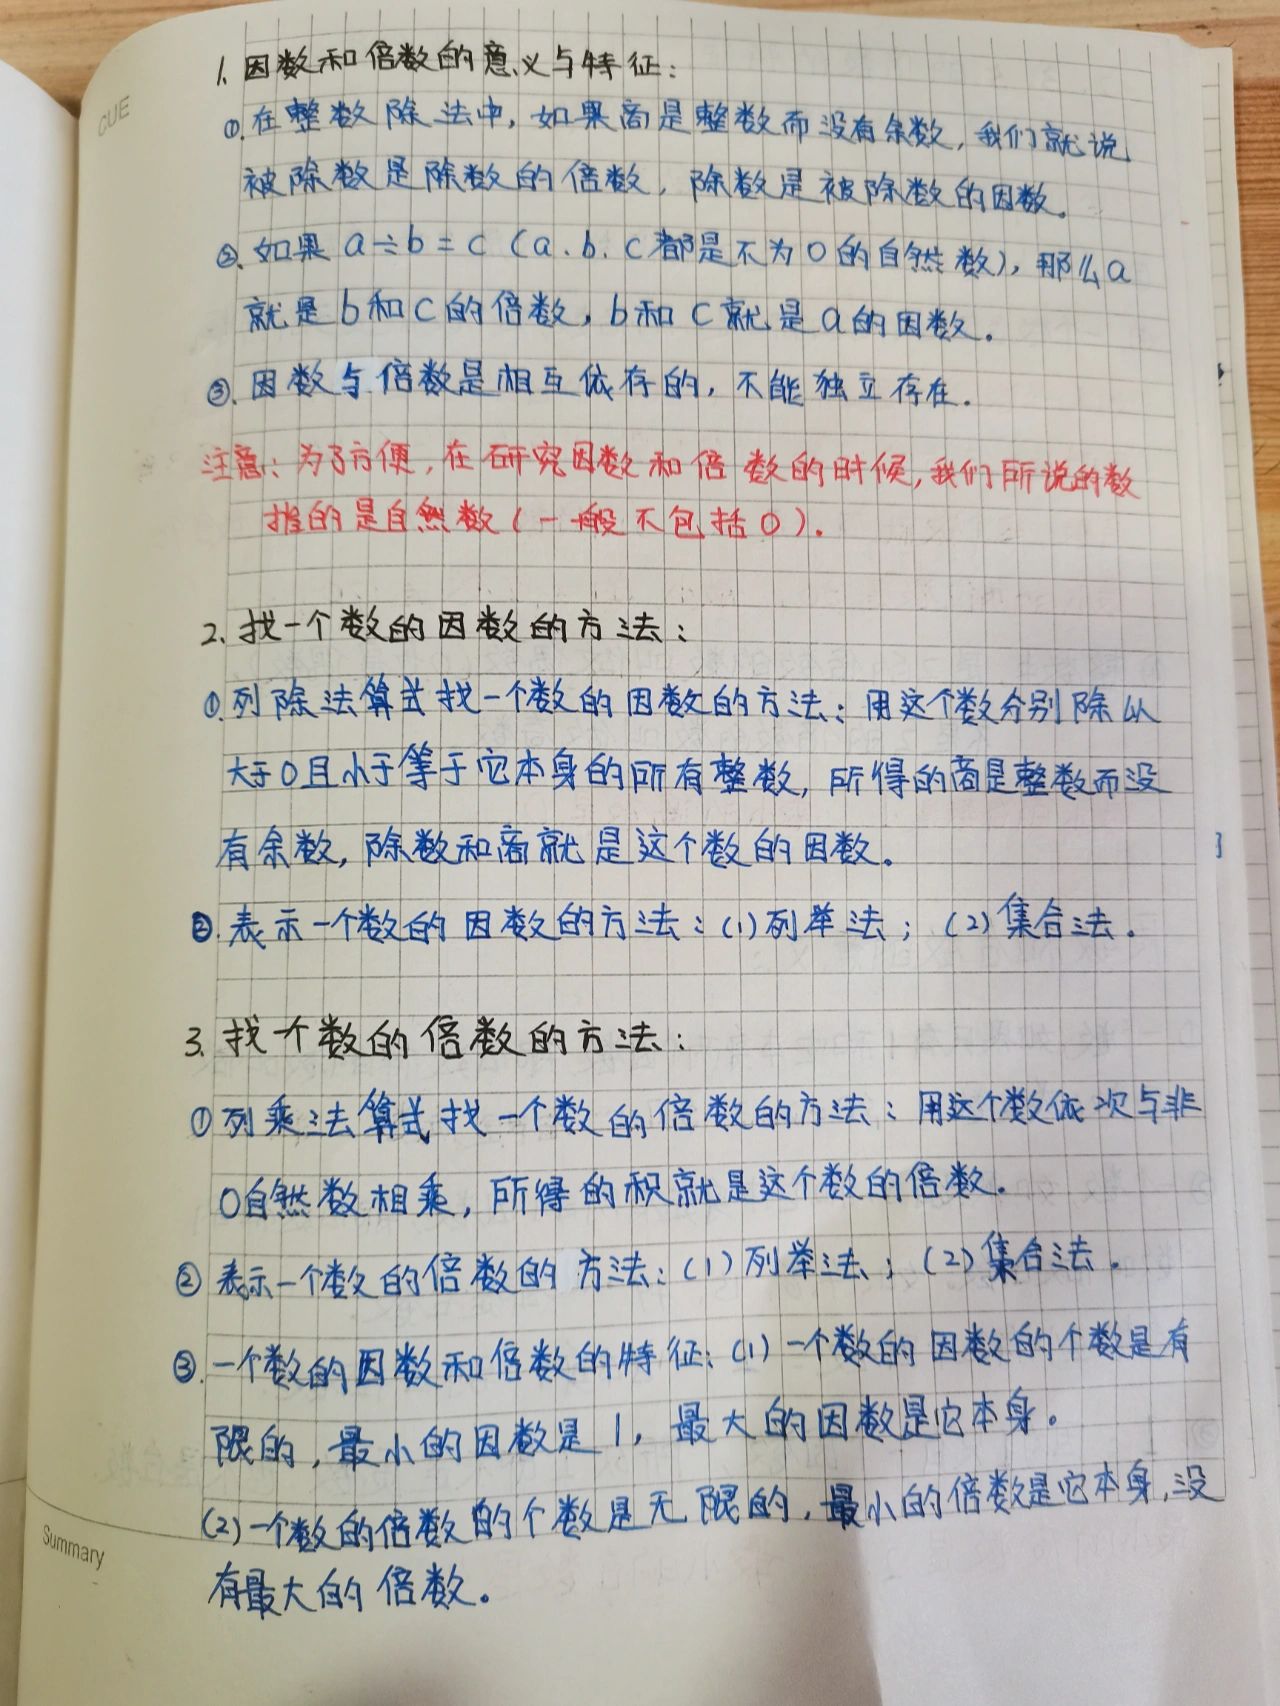 CUE
1. 因数和倍数的意义与特征:
①. 在整数除法中, 如果商是整数而没有余数, 我们就说
被除数是除数的倍数, 除数是被除数的因数。
②. 如果 a÷b=c (a.b.c都是不为0的自然数), 那么a
就是b和c的倍数, b和c就是a的因数。
③. 因数与倍数是相互依存的, 不能独立存在.
注意: 为了方便, 在研究因数和倍数的时候, 我们所说的数
指的是自然数 (一般不包括0).
2. 找一个数的因数的方法:
①. 列除法算式找一个数的因数的方法: 用这个数分别除以
大于0且小于等于它本身的所有整数, 所得的商是整数而没
有余数, 除数和商就是这个数的因数。
②. 表示一个数的因数的方法: (1) 列举法; (2) 集合法.
3. 找个数的倍数的方法:
① 列乘法算式找一个数的倍数的方法: 用这个数依次与非
0自然数相乘, 所得的积就是这个数的倍数。
② 表示一个数的倍数的方法: (1) 列举法; (2) 集合法.
③. 一个数的因数和倍数的特征: (1) 一个数的因数的个数是有
限的, 最小的因数是1, 最大的因数是它本身。
(2) 一个数的倍数的个数是无限的, 最小的倍数是它本身, 没
有最大的倍数。
Summary